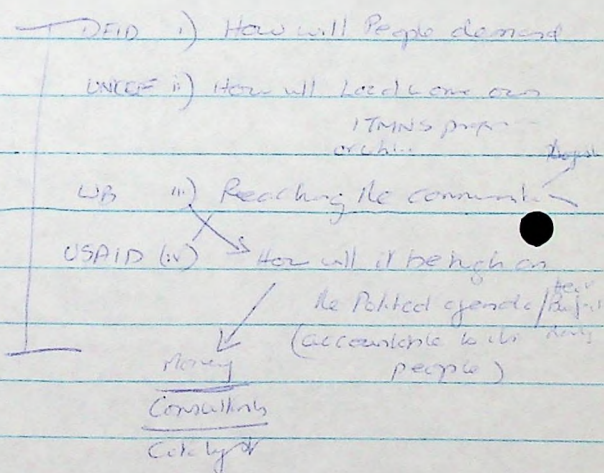 DFID i) How will People demand
UNICEF ii) How will
ITMNS
WB iii) Reaching the
USAID (iv) How will it be high on
the Political agenda/
(accountable to the
people)
Money
Consultants
Catalyst